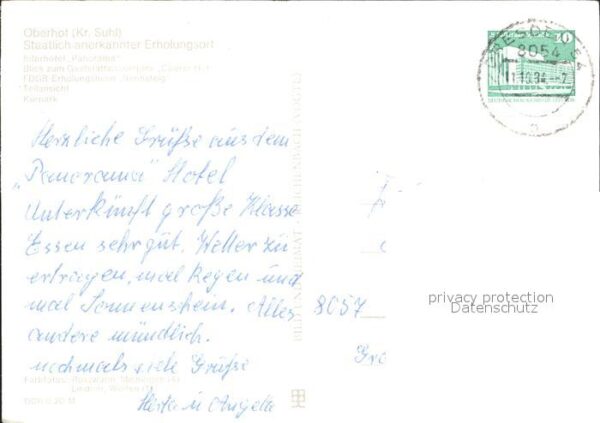 Oberhof (Kr. Suhl)
Staatlich anerkannter Erholungsort
Interhotel "Panorama"
Blick zum Gästehaus
FDGB-Erholungsheim "Rennsteig"
Teilansicht
Kurpark
10
8054
Herzliche Grüße aus dem
"Panorama" Hotel
Unterkünft große Klasse
Essen sehr gut. Wetter zu
ertragen, mal Regen und
mal Sonnenschein. Alles
andere mündlich.
nochmals viele Grüße
Herta u. Angelle
8057
Gro
BILD UND HEIMAT REICHENBACH (VOGTL)
privacy protection
Datenschutz